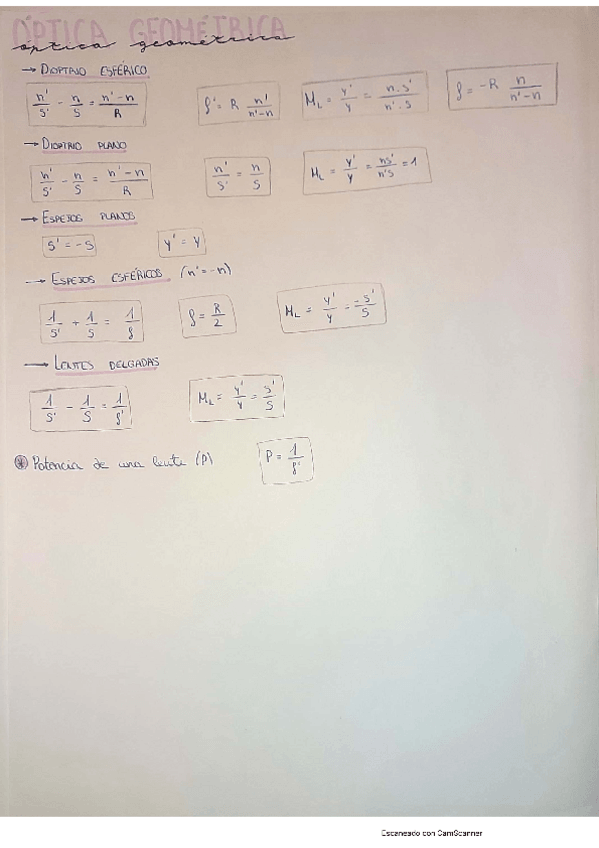 ÓPTICA GEOMÉTRICA
óptica geométrica
→ DIOPTRIO ESFÉRICO
n'/s' - n/s = n'-n/R    f' = R n'/n'-n    M_L = y'/y = n·s'/n'·s    f = -R n/n'-n
→ DIOPTRIO PLANO
n'/s' - n/s = n'-n/R    n'/s' = n/s    M_L = y'/y = ns'/n's = 1
→ ESPEJOS PLANOS
s' = -s    y' = y
→ ESPEJOS ESFÉRICOS (n' = -n)
1/s' + 1/s = 1/f    f = R/2    M_L = y'/y = -s'/s
→ LENTES DELGADAS
1/s' - 1/s = 1/f'    M_L = y'/y = s'/s
* Potencia de una lente (P)    P = 1/f'
Escaneado con CamScanner